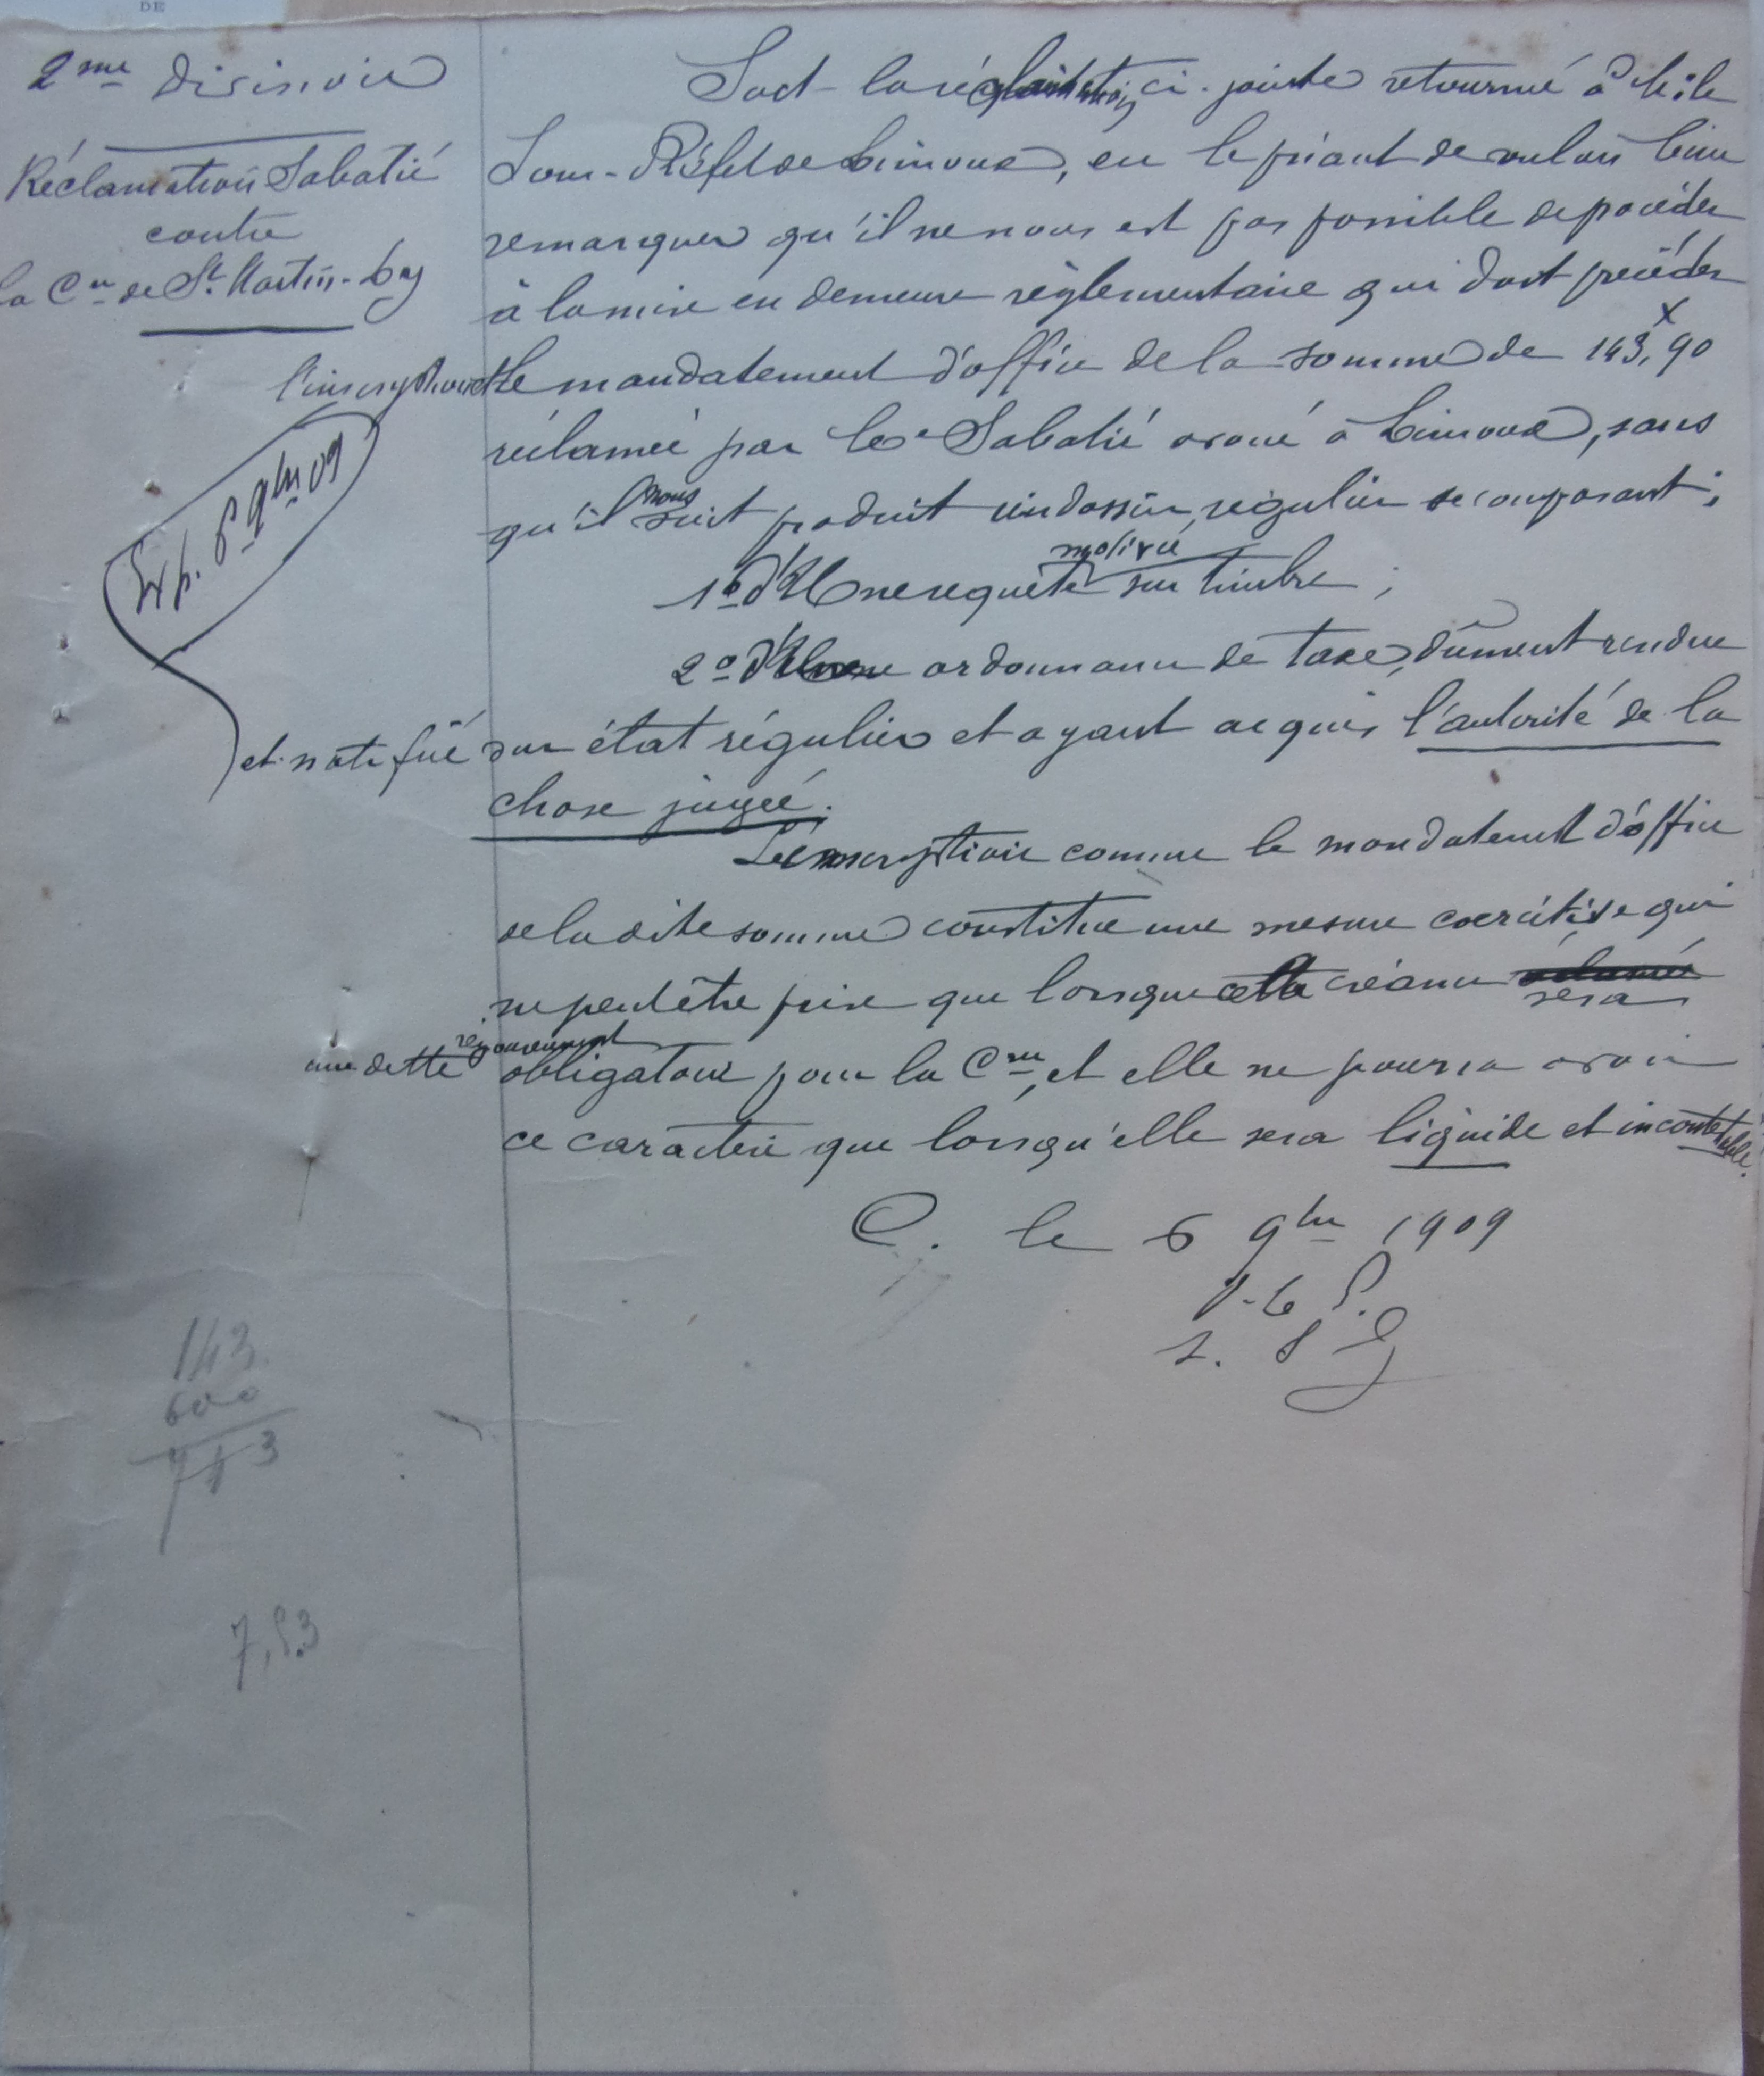 DE
2me Division
Réclamation Sabatié
contre
la Cne de St. Martin-Lys
Soit la réclamation ci-jointe retourné à M. le
Sous-Préfet de Limoux, en le priant de vouloir bien
remarquer qu'il ne nous est pas possible de procéder
à la mise en demeure règlementaire qui doit précéder
l'inscription et le mandatement d'office de la somme de 143,90
réclamée par Me Sabatié avoué à Limoux, sans
qu'il nous soit produit un dossier régulier se composant:
1o d'Une requête motivée sur timbre;
2o d'Une ordonnance de taxe, dûment rendue
et notifiée sur état régulier et ayant acquis l'autorité de la
chose jugée.
L'inscription comme le mandatement d'office
de la dite somme constitue une mesure coercitive qui
ne peut être prise que lorsque cette créance réclamée sera
une dette rigoureusement obligatoire pour la Cne, et elle ne pourra avoir
ce caractère que lorsqu'elle sera liquide et incontestable.
C. le 6 9bre 1909
P. le P.
S. G
Exp. 6 9bre 09
143
600
743
7,53